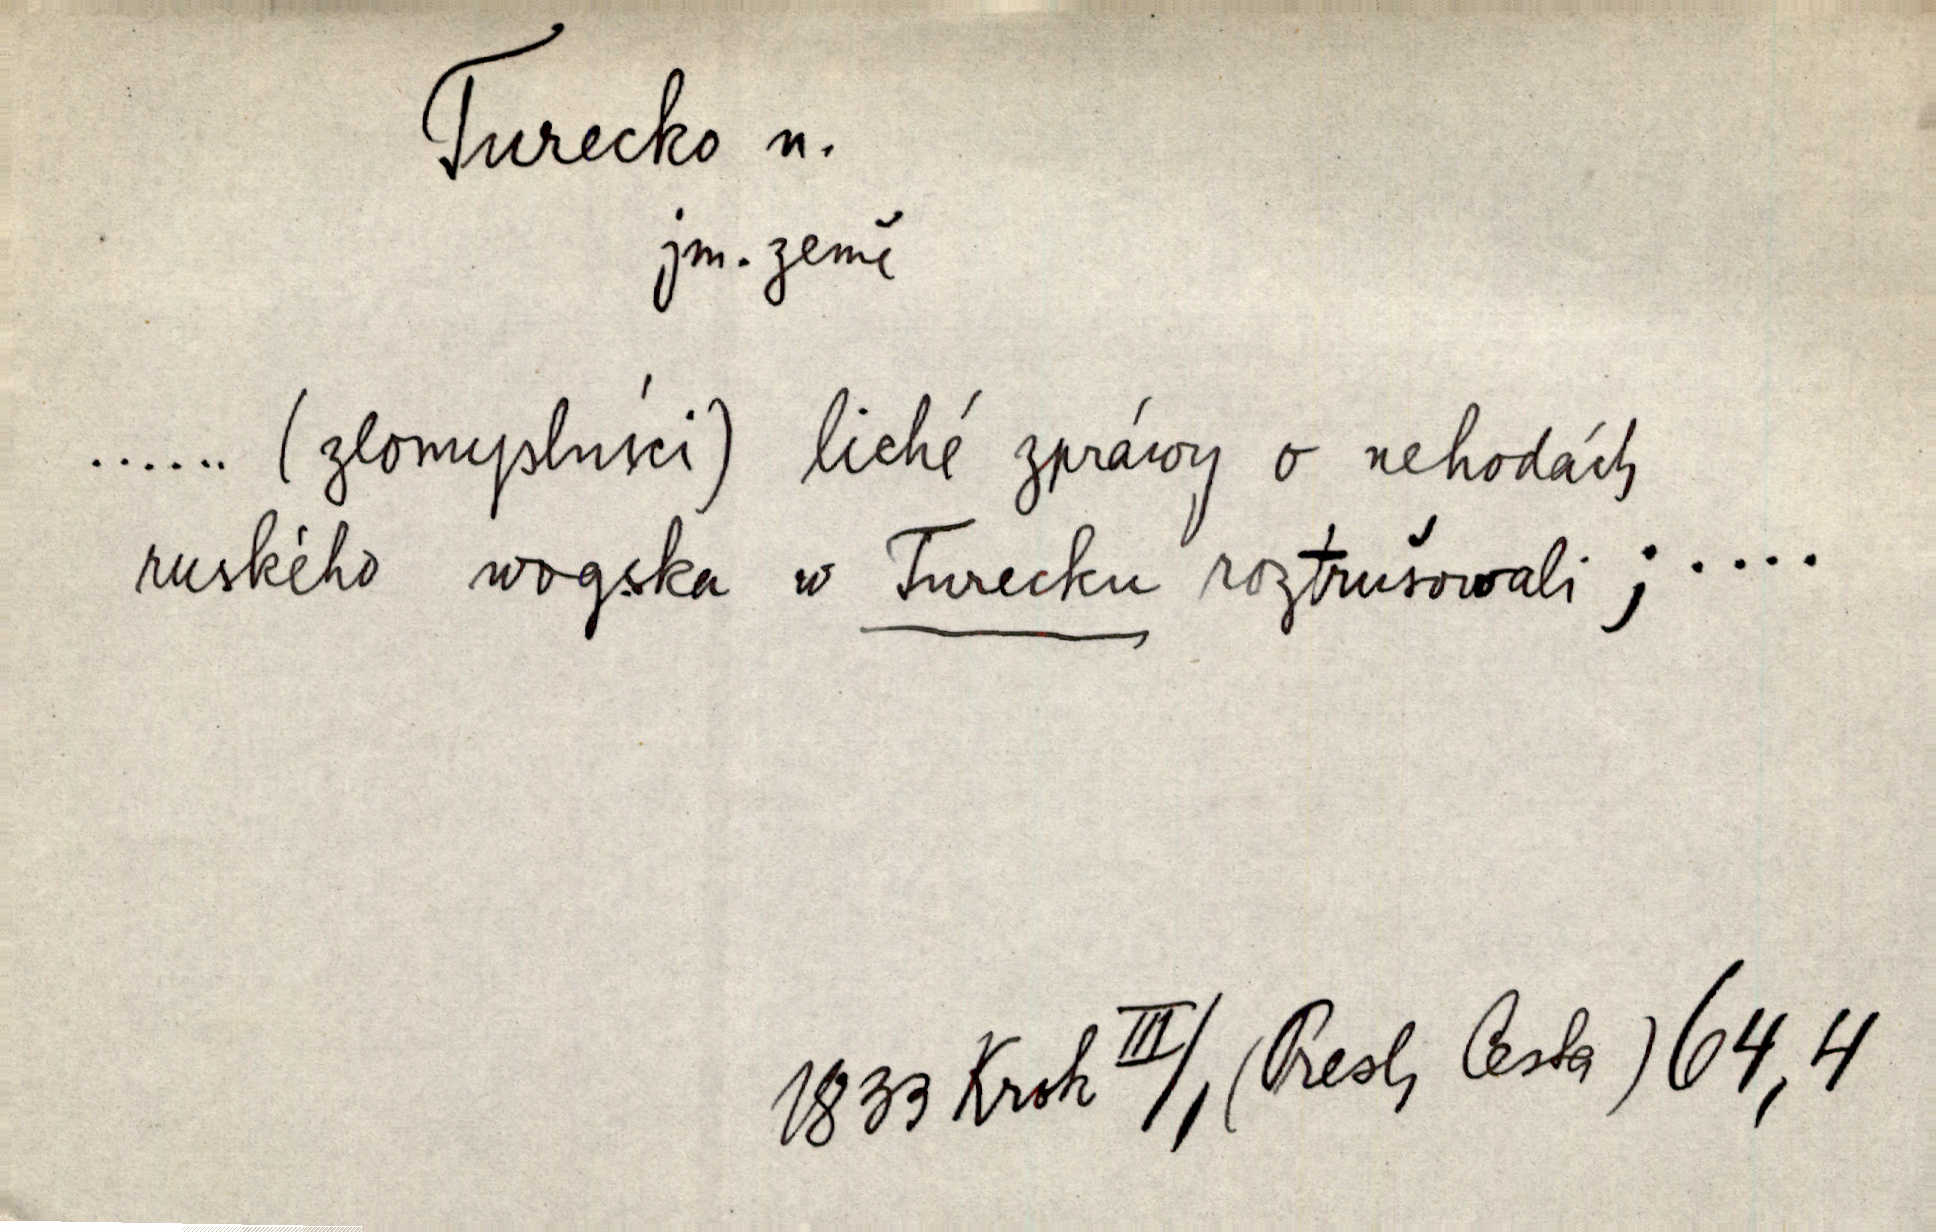 Turecko n.
jm. země
...... (zlomyslníci) liché zpráwy o nehodách
ruského wogska w Turecku roztrušowali ; ....
1833 Krok III/1 (Presl, Cesta) 64,4